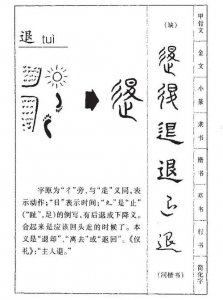 退 tuì
(缺)
退
退
(同楷书)
甲骨文
金文
小篆
隶书
楷书
草书
行书
简化字
字原为“彳”旁,与“辵”义同,表
示动作;“日”表示时间;“夂”是“止”
(“趾”,足)的倒写,有后退或下降义。
合起来是应该回头走的时候了。本
义是“退却”、“离去”或“返回”。《仪
礼》:“主人退。”